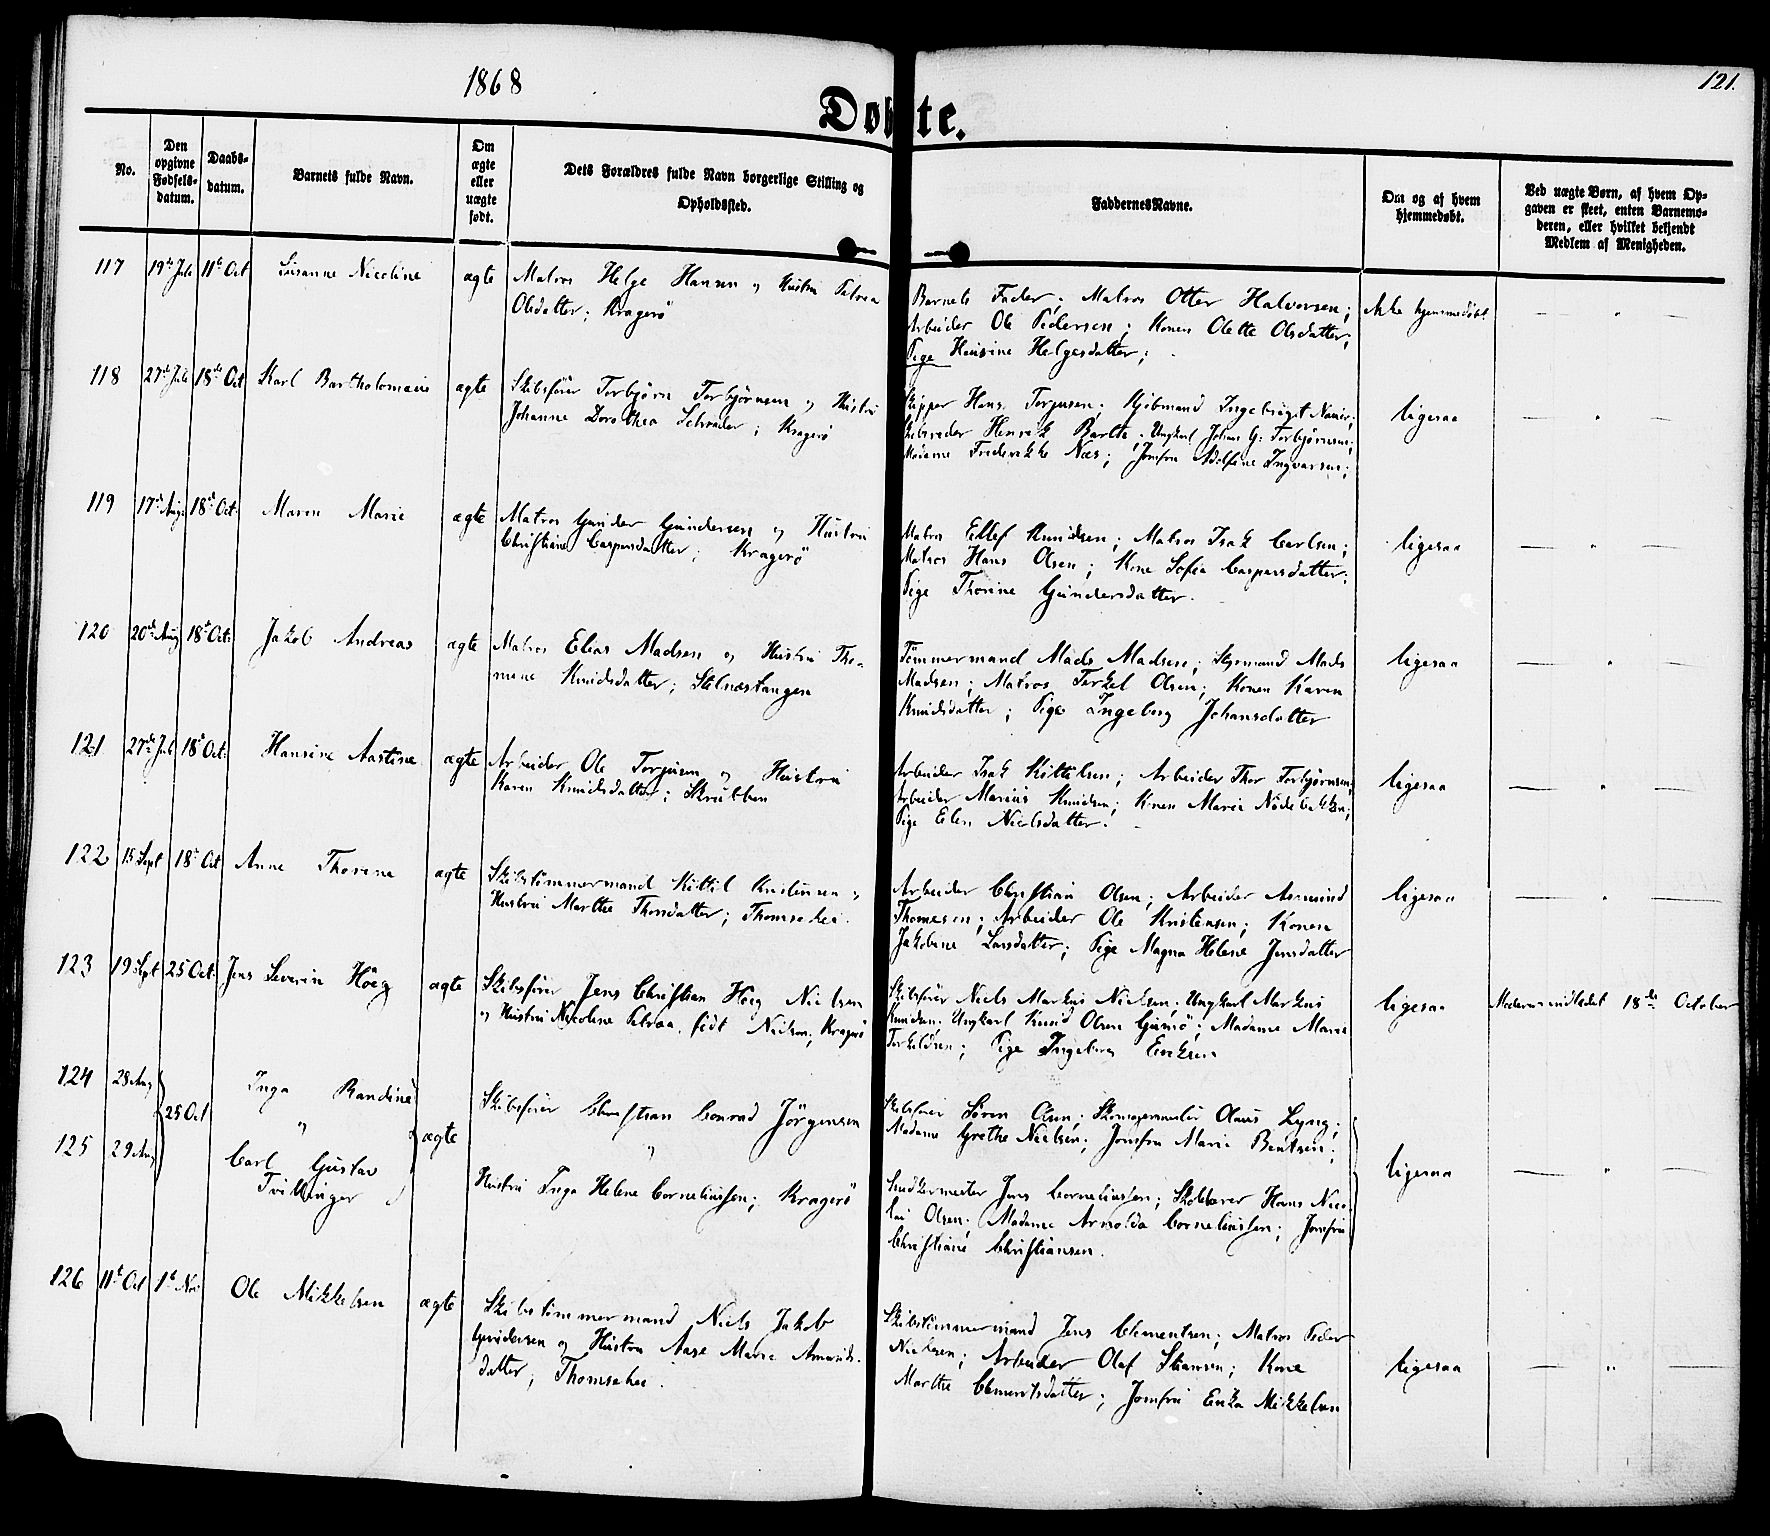 1868
121.
Døbte.
No.
Den opgivne Fødsels-datum.
Daabs-datum.
Barnets fulde Navn.
Om ægte eller uægte født.
Dets Forældres fulde Navn borgerlige Stilling og Opholdssted.
Faddernes Navne.
Om og af hvem hjemmedøbt.
Ved uægte Børn, af hvem Opgaven er skeet, enten Barnemoderen, eller hvilket bekjendt Medlem af Menigheden.
117 19de Juli 11te Oct Susanne Nicoline ægte
Matros Helge Hansen og Hustru Petrea
Olsdatter; Kragerö
Barnets Fader; Matros Otter Halvorsen;
Arbeider Ole Pedersen; Konen Olette Olsdatter;
Pige Hansine Helgesdatter;
Ikke hjemmedøbt — " —
118 27de Juli 18de Oct Karl Bartholomæus ægte
Skibsfører Torbjörn Torbjörnsen og Hustru
Johanne Dorothea Schrøder; Kragerö
Skipper Hans Torjusen; Kjöbmand Ingebrigt
Skibsreder Henrik Barthe. Ungkarl Johan G. Torbjörnsen;
Madame Frederikke Næs; Jomfru Adolfine Ingvarsen;
ligesaa — " —
119 17de Aug 18de Oct. Maren Marie ægte
Matros Gunder Gundersen og Hustru
Christiane Caspersdatter; Kragerö
Matros Ellef Knudsen; Matros Isak Carlsen;
Matros Hans Olsen; Kone Sofia Caspersdatter;
Pige Thorine Gundersdatter.
ligesaa — " —
120 20de Aug 18de Oct: Jakob Andreas ægte
Matros Elias Madsen og Hustru Tho-
mine Knudsdatter; Stilnæstangen
Tömmermand Mads Madsen; Styrmand Mads
Madsen; Matros Terkel Olsen; Konen Karen
Knudsdatter; Pige Ingeborg Johansdatter
ligesaa — " —
121 27de Juli 18de Oct: Hansine Aastine ægte
Arbeider Ole Torjusen og Hustru
Karen Knudsdatter; Skrubben
Arbeider Isak Kittilsen; Arbeider Thor Torbjörnsen;
Arbeider Marius Knudsen; Konen Maria Nödebakken;
Pige Elen Nielsdatter.
ligesaa — " —
122 15 Sept 18de Oct Anne Thorine ægte
Skibstömmermand Kittil Kristensen og
Hustru Marthe Thorsdatter; Thomsehei.
Arbeider Christian Olsen; Arbeider Asmund
Thomesen; Arbeider Ole Kristensen; Konen
Jakobine Larsdatter; Pige Magna Helene Jensdatter
ligesaa — " —
123 19 Sept 25 Oct. Jens Severin Höeg ægte
Skibsfører Jens Christian Höeg Nielsen
og Hustru Nicoline Petrea, födt Nielsen; Kragerö
Skibsfører Niels Markus Nielsen; Ungkarl Markus
Knudsen; Ungkarl Knud Olsen Gumö; Madame Maren
Terkelsen; Pige Ingeborg Eriksen
ligesaa Moderen indledet 18de October
124 28 Aug 25 Oct Inga Randine
"
125 29 Aug Carl Gustav
Tvillinger
ægte
Skibsfører Christian Conrad Jörgensen
"
Hustru Inga Helene Corneliussen; Kragerö
Skibsfører Sören Olsen; Skomagermester Olaus Lyng;
Madame Grethe Nielsen; Jomfru Marie Bentsen;
Snedkermester Jens Corneliussen; Skolelærer Hans Nico-
lai Olsen; Madame Arnolda Corneliussen; Jomfru
Christiane Christiansen.
ligesaa — " —
126 11te Oct 1te Nov Ole Mikkelsen ægte
Skibstömmermand Niels Jakob
Gundersen og Hustru Aase Marie Amunds-
datter; Thomsehei.
Skibstömmermand Jens Clementsen; Matros Peder
Nielsen; Arbeider Olaf Stiansen; Kone
Marthe Clementsdatter; Jomfru Erika Mikkelsen
ligesaa — " —